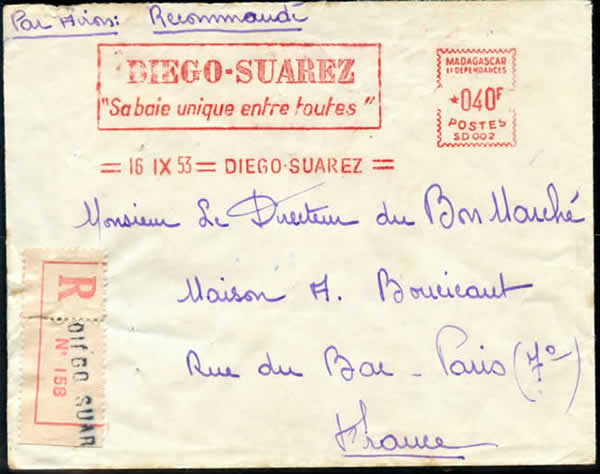 Par Avion: Recommandé
DIEGO-SUAREZ
"Sa baie unique entre toutes"
MADAGASCAR
ET DEPENDANCES
*040F
POSTES
SD002
= 16 IX 53 = DIEGO-SUAREZ =
Monsieur Le Directeur du Bon Marché
Maison A. Boucicaut
Rue du Bac - Paris (7e)
France
R
DIEGO SUAR
N° 158